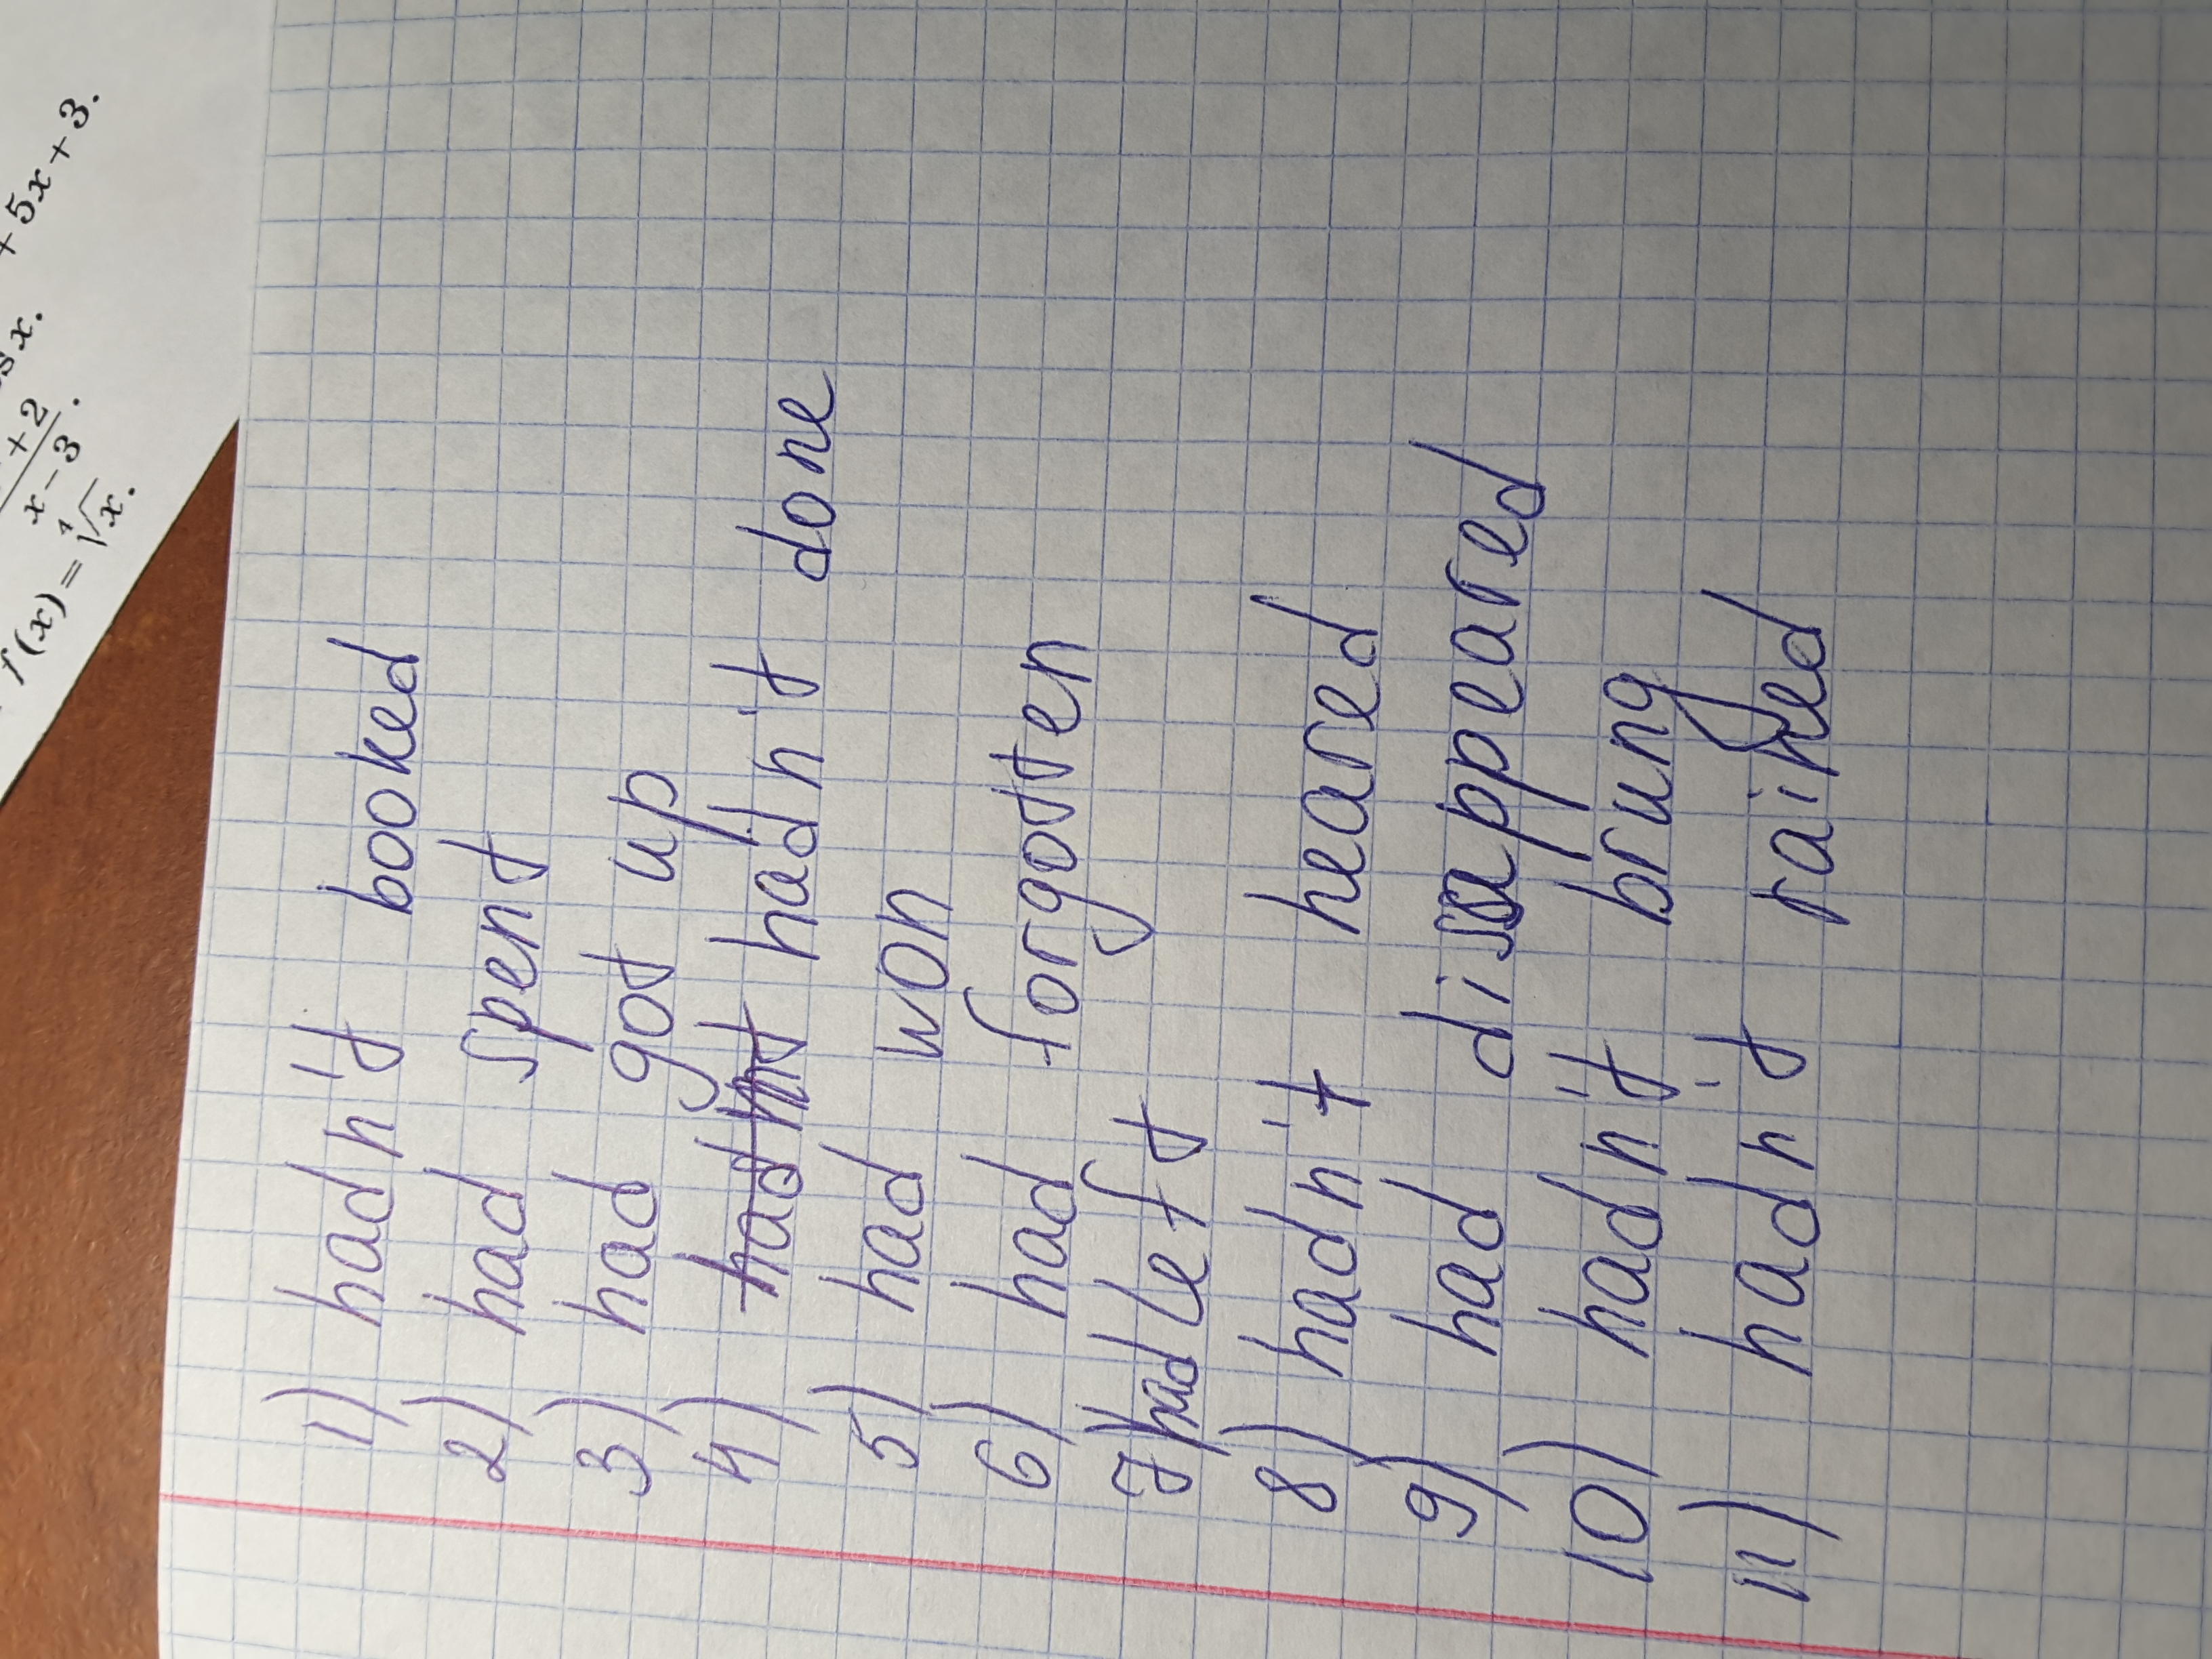 + 5x + 3.
x.
+ 2
x - 3
.
f(x) = ∜x.
1) hadn't booked
2) had spent
3) had got up
4) hadn't done
5) had won
6) had forgotten
7) had left
8) hadn't heared
9) had disappeared
10) hadn't brung
11) hadn't rained